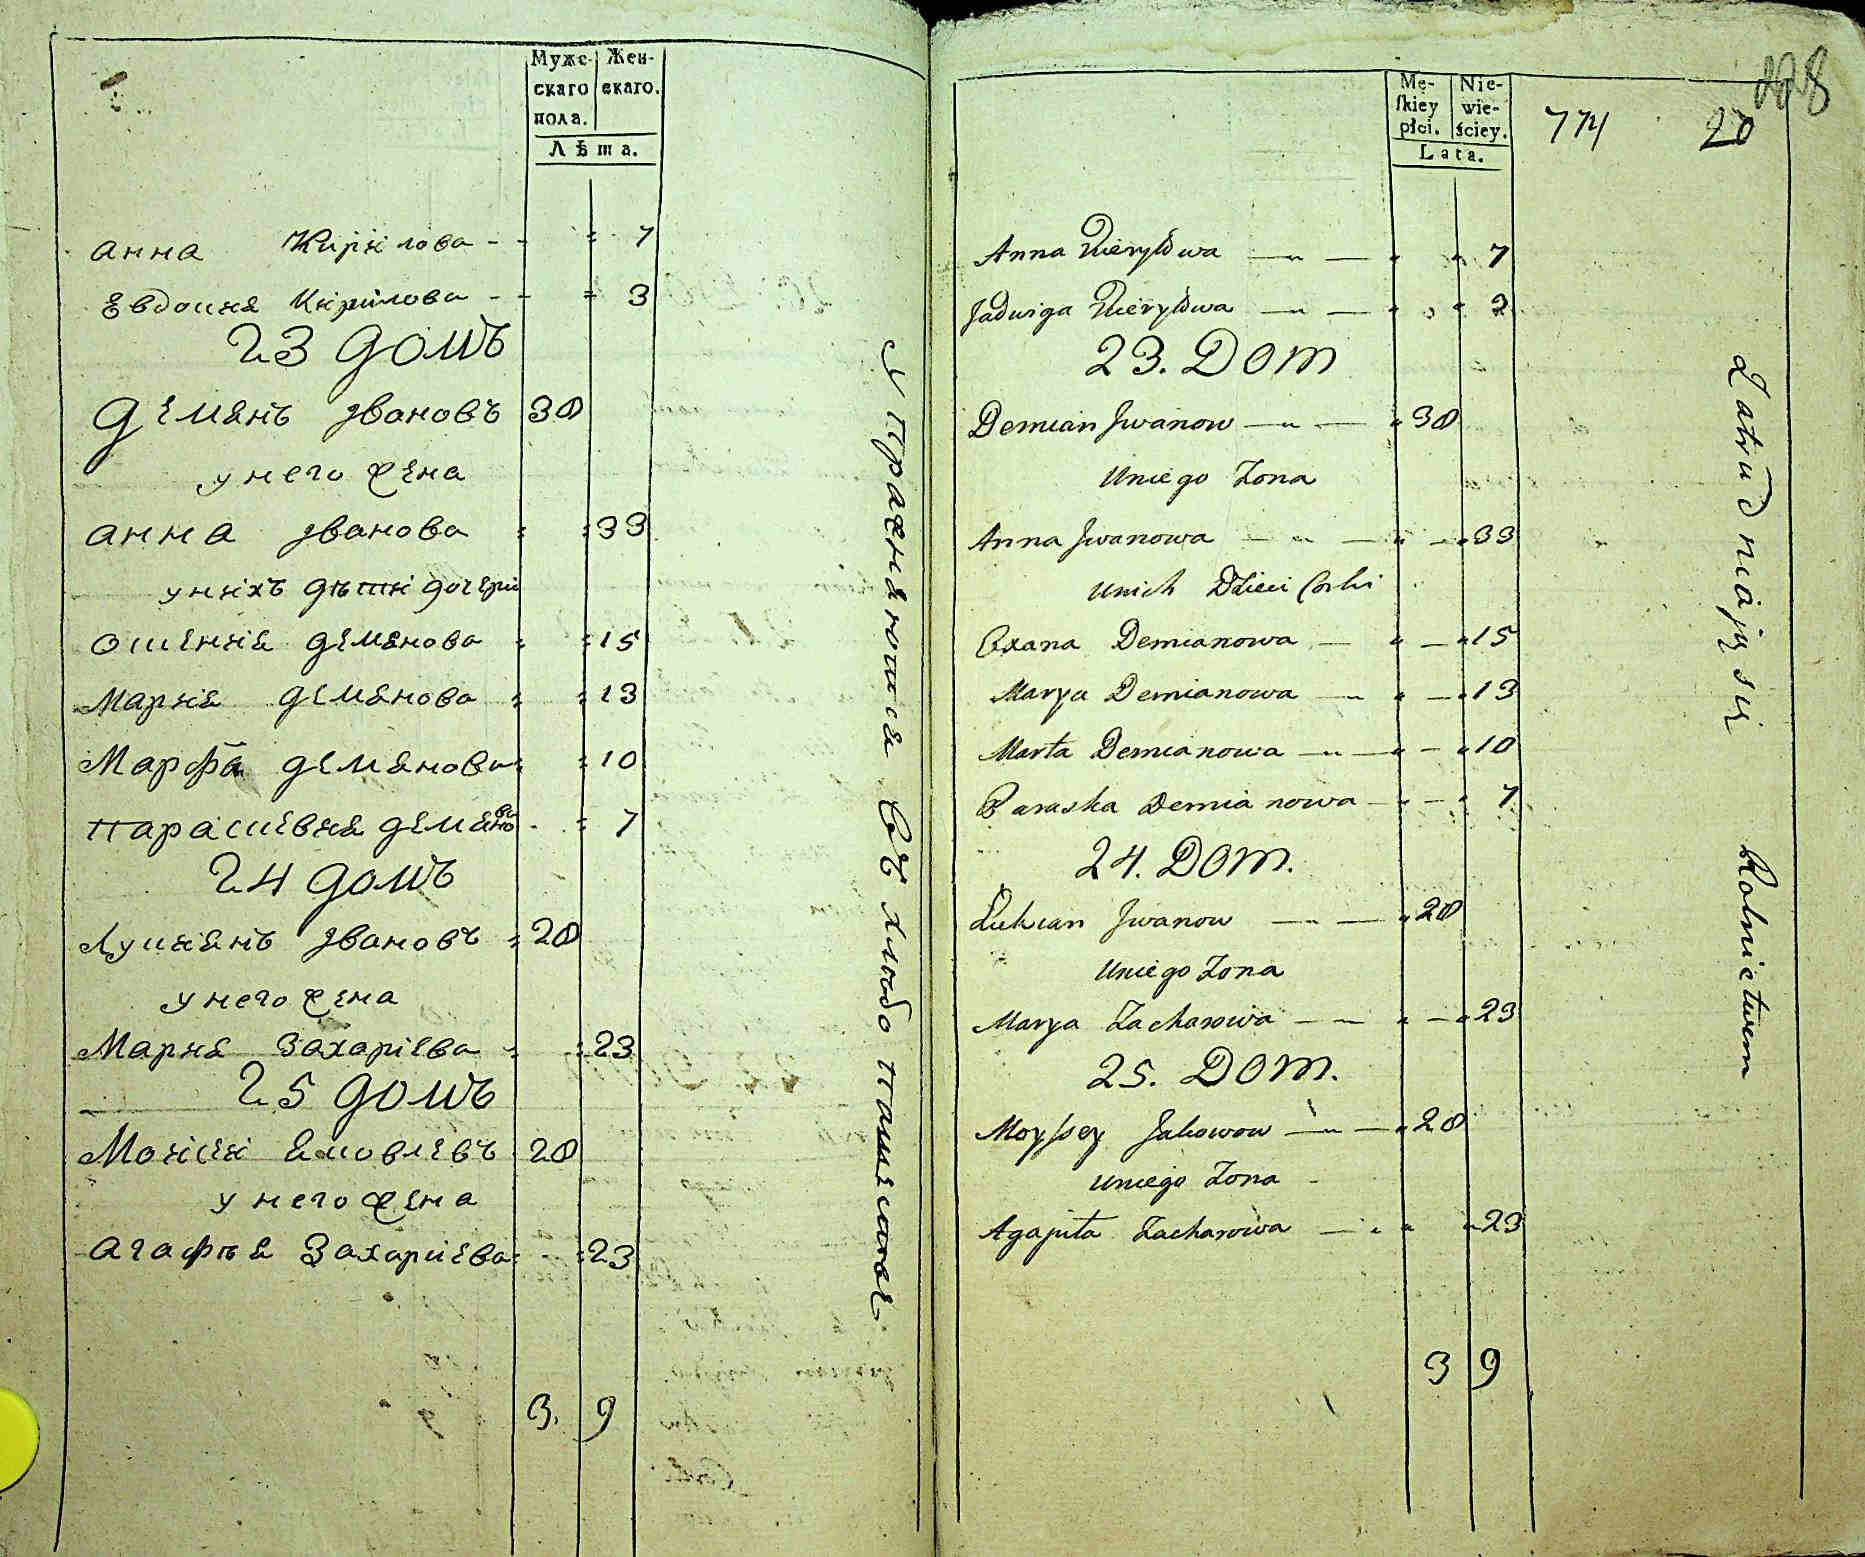 Муже- Жен-
скаго скаго.
пола.
Лѣта.
Анна Кирилова - - = 7
Евдокия Кирилова - - = 3
23 домъ
Демянъ Ивановъ 30
у него жена
Анна Иванова = = 33
у нихъ дѣти дочери
Оксения Демянова = = 15
Мария Демянова = = 13
Марфа Демянова = = 10
Параскевия Демянова - = 7
24 домъ
Лукиянъ Ивановъ = 20
у него жена
Мария Захариева = = 23
25 домъ
Моисей Яковлевъ 20
у него жена
Агафья Захариева = - = 23
3. 9
Упражняются въ хлѣбопашестве
Mę- Nie-
skiey wie-
płci. ściey.
Lata.
774 20
228
Anna Kieryłowa — „ — „ „ 7
Jadwiga Kieryłowa — „ — „ „ 3
23. Dom
Demian Jwanow — „ — „ 30
Uniego Zona
Anna Jwanowa — „ — „ — „ 33
Unich Dzieci Corki
Oxana Demianowa — „ — „ 15
Marya Demianowa — „ — „ 13
Marta Demianowa — „ — „ — „ 10
Paraska Demianowa — „ — „ 7
24. Dom.
Łukian Jwanow — „ — „ 20
Uniego Zona
Marya Zacharowa — — „ — „ 23
25. Dom.
Moysey Jakowow — „ — „ 20
Uniego Zona
Agapita Zacharowa — „ „ „ 23
3 9
Zatrudniają się Rolnictwem